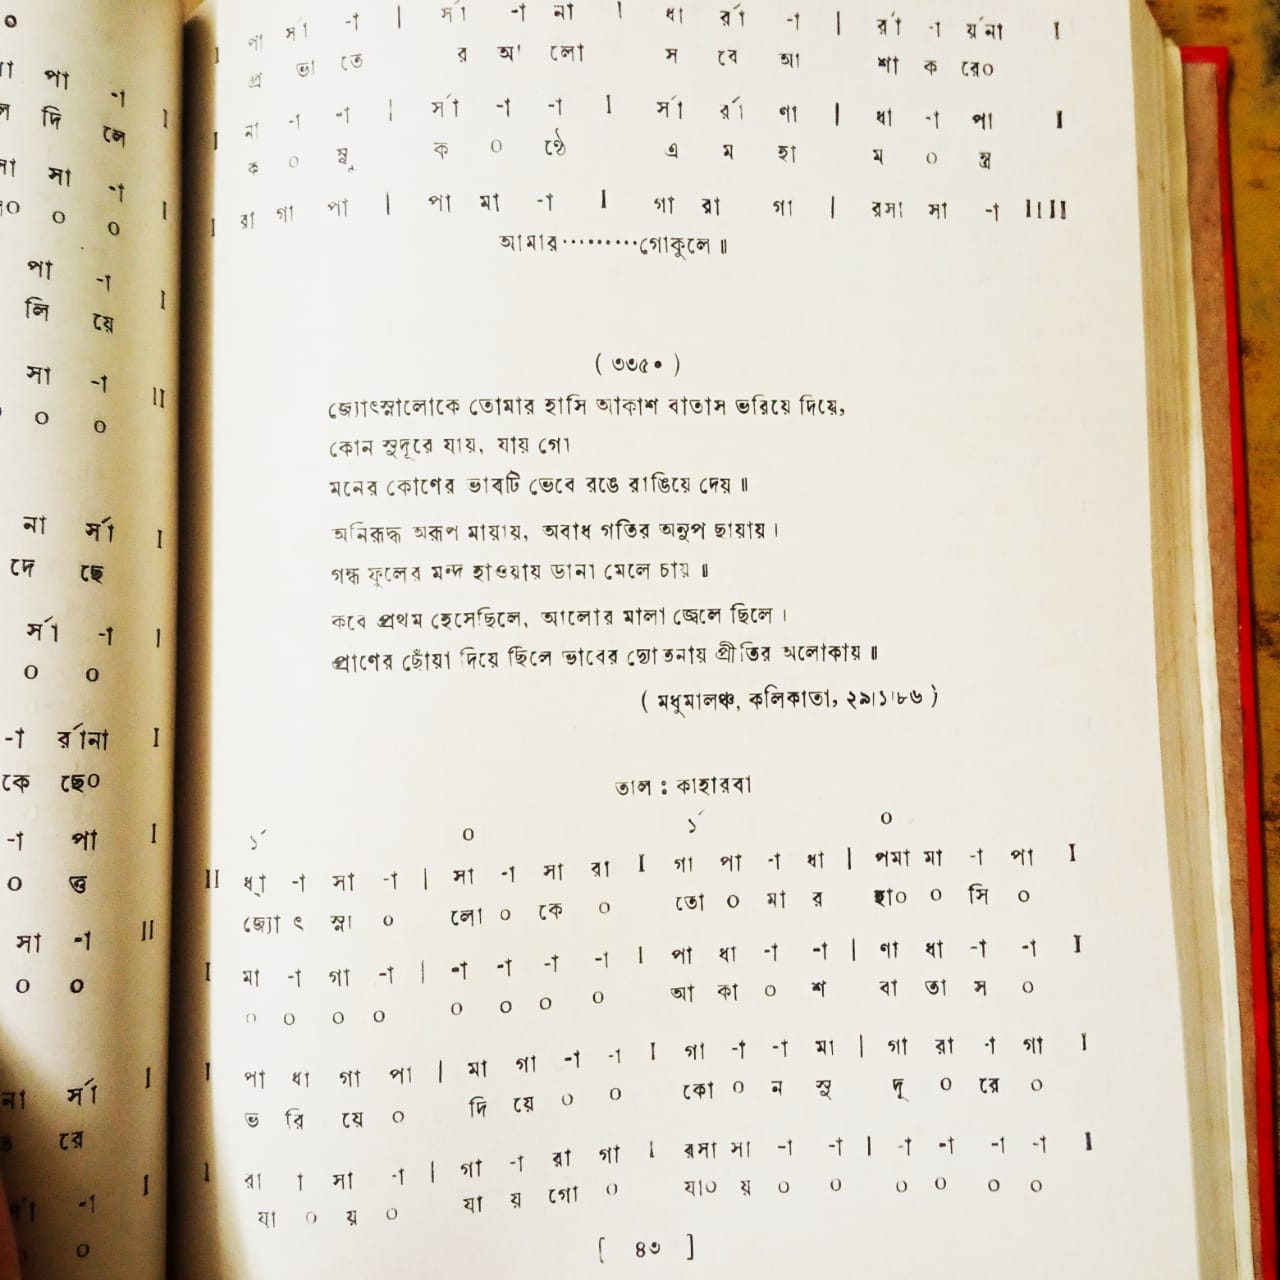 পা র্সা -া | র্সা -া না | ধা র্রা -া | র্রা -া র্য়না I
প্র ভা তে র আ লো স বে আ শা ক রে০
I না -া -া | র্সা -া -া I র্সা র্রা ণা | ধা -া পা I
ক ০ ম্বু ক ০ ণ্ঠে এ ম হা ম ০ ন্ত্র
I রা গা পা | পা মা -া I গা রা গা | রসা সা -া IIII
আমার·········গোকুলে॥
( ৩৩৫০ )
জ্যোৎস্নালোকে তোমার হাসি আকাশ বাতাস ভরিয়ে দিয়ে,
কোন সুদূরে যায়, যায় গো
মনের কোণের ভাবটি ভেবে রঙে রাঙিয়ে দেয়॥
অনিরুদ্ধ অরূপ মায়ায়, অবাধ গতির অনুপ ছায়ায়।
গন্ধ ফুলের মন্দ হাওয়ায় ডানা মেলে চায়॥
কবে প্রথম হেসেছিলে, আলোর মালা জ্বেলে ছিলে।
প্রাণের ছোঁয়া দিয়ে ছিলে ভাবের দ্যোতনায় প্রীতির অলোকায়॥
( মধুমালঞ্চ, কলিকাতা, ২৯।১।৮৬ )
তাল : কাহারবা
১´ ০ ১´ ০
II ধ্া -া সা -া | সা -া সা রা I গা পা -া ধা | পমা মা -া পা I
জ্যো ৎ স্না ০ লো ০ কে ০ তো ০ মা র হা০ ০ সি ০
I মা -া গা -া | -া -া -া -া I পা ধা -া -া | ণা ধা -া -া I
০ ০ ০ ০ ০ ০ ০ ০ আ কা ০ শ বা তা স ০
I পা ধা গা পা | মা গা -া -া I গা -া -া মা | গা রা -া গা I
ভ রি য়ে ০ দি য়ে ০ ০ কো ০ ন সু দূ ০ রে ০
I রা া সা -া | গা -া রা গা I রসা সা -া -া | -া -া -া -া I
যা ০ য় ০ যা য় গো ০ যা০ য় ০ ০ ০ ০ ০ ০
[ ৪৩ ]